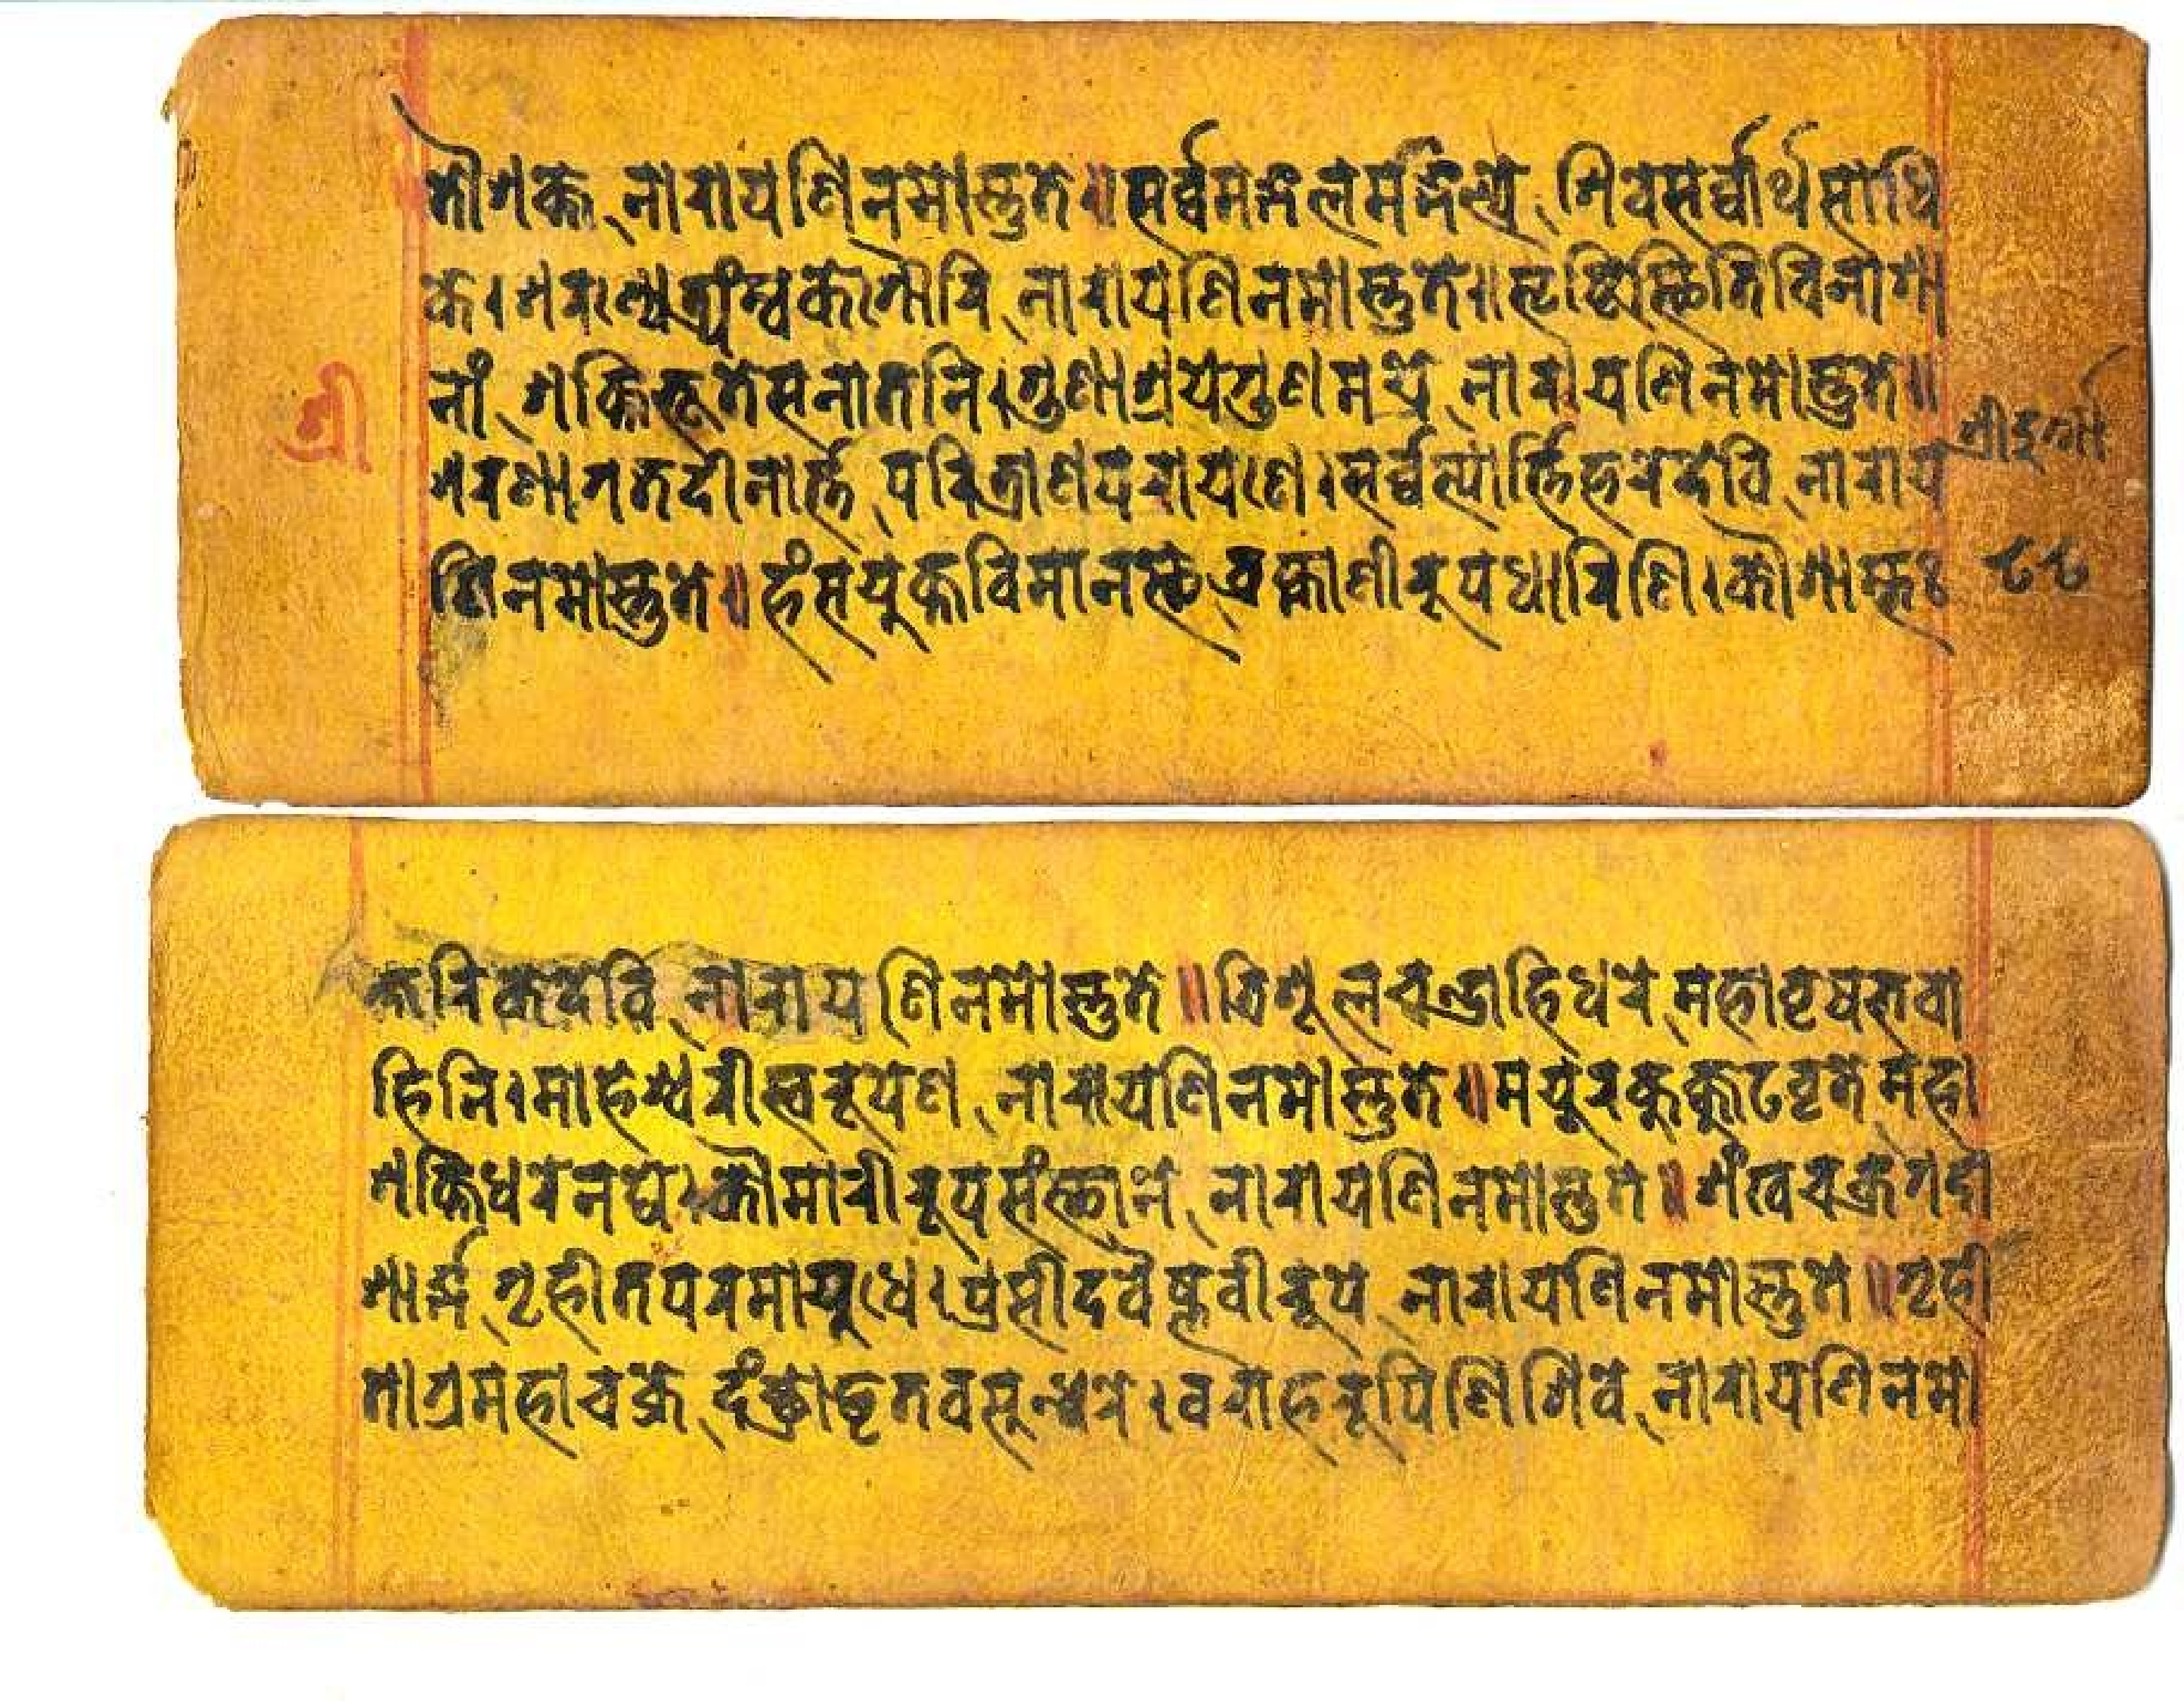 तौशक्ते नारायणि नमोस्तुते ॥ सर्व्वमङ्गलमङ्गल्ये शिवे सर्व्वार्थसाधि
के । शरण्ये त्र्यंम्बके गौरि नारायणि नमोस्तुते ॥ सृष्टिस्थितिविनाशा
नां शक्तिभूते सनातनि । गुणाश्रये गुणमये नारायणि नमोस्तुते ॥
शरणागतदीनार्त्त परित्राणपरायणे । सर्व्वस्यार्त्तिहरे देवि नाराय
णि नमोस्तुते ॥ हंसयुक्तविमानस्थे ब्रह्माणीरूपधारिणि । कौशाम्भः
श्री
श्रीदुर्गा
८८
क्षरिके देवि नारायणि नमोस्तुते ॥ त्रिशूलचन्द्राहिधरे महावृषभवा
हिनि । माहेश्वरीस्वरूपेण नारायणि नमोस्तुते ॥ मयूरकुक्कुटवृते महा
शक्तिधरेनघे । कौमारीरूपसंस्थाने नारायणि नमोस्तुते ॥ शंखचक्रगदा
शार्ङ्ग गृहीतपरमायुधे । प्रसीद वैष्णवीरूपे नारायणि नमोस्तुते ॥ गृही
ताग्रमहाचक्रे दंष्ट्रोद्धृतवसुन्धरे । वराहरूपिणि शिवे नारायणि नमो